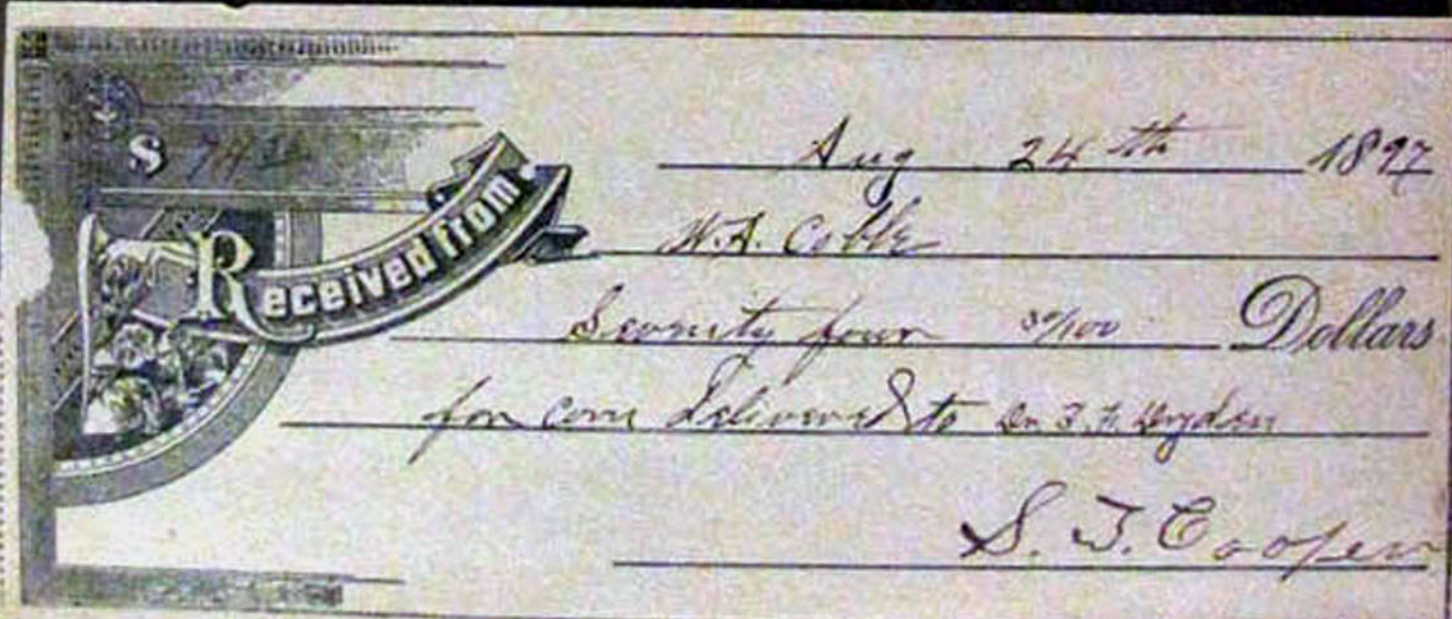 Aug 24th 1897
$ 74
Received from W. A. Coble
Seventy four 30/100 Dollars
for corn delivered to Dr. F. Dryden
S. T. Cooper